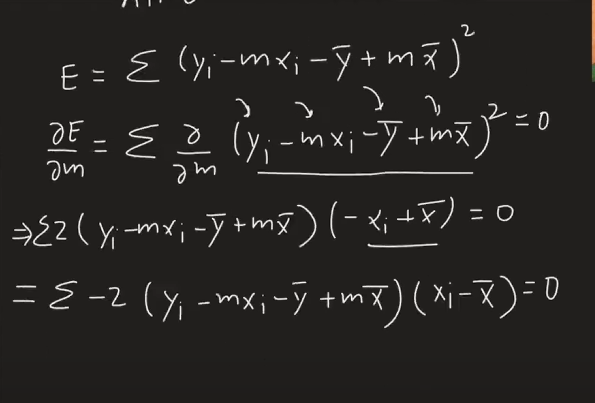 E = Σ (yᵢ - mxᵢ - ȳ + mx̄)²
∂E/∂m = Σ ∂/∂m (yᵢ - mxᵢ - ȳ + mx̄)² = 0
⇒ Σ 2 (yᵢ - mxᵢ - ȳ + mx̄) (-xᵢ + x̄) = 0
= Σ -2 (yᵢ - mxᵢ - ȳ + mx̄) (xᵢ - x̄) = 0